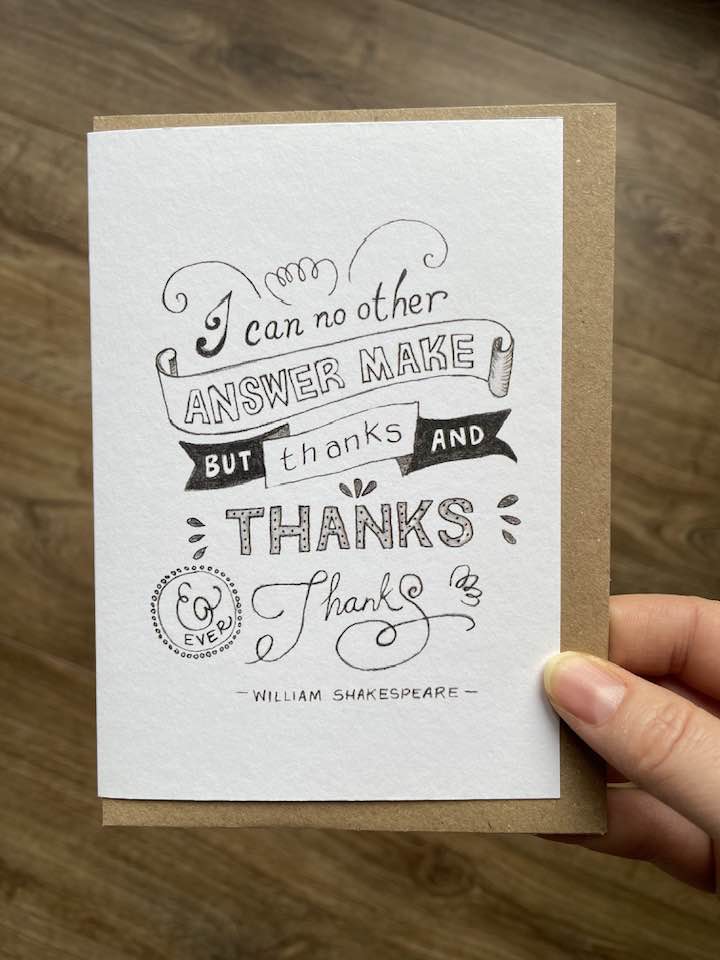 I can no other
ANSWER MAKE
BUT thanks AND
THANKS
& EVER Thanks
– WILLIAM SHAKESPEARE –